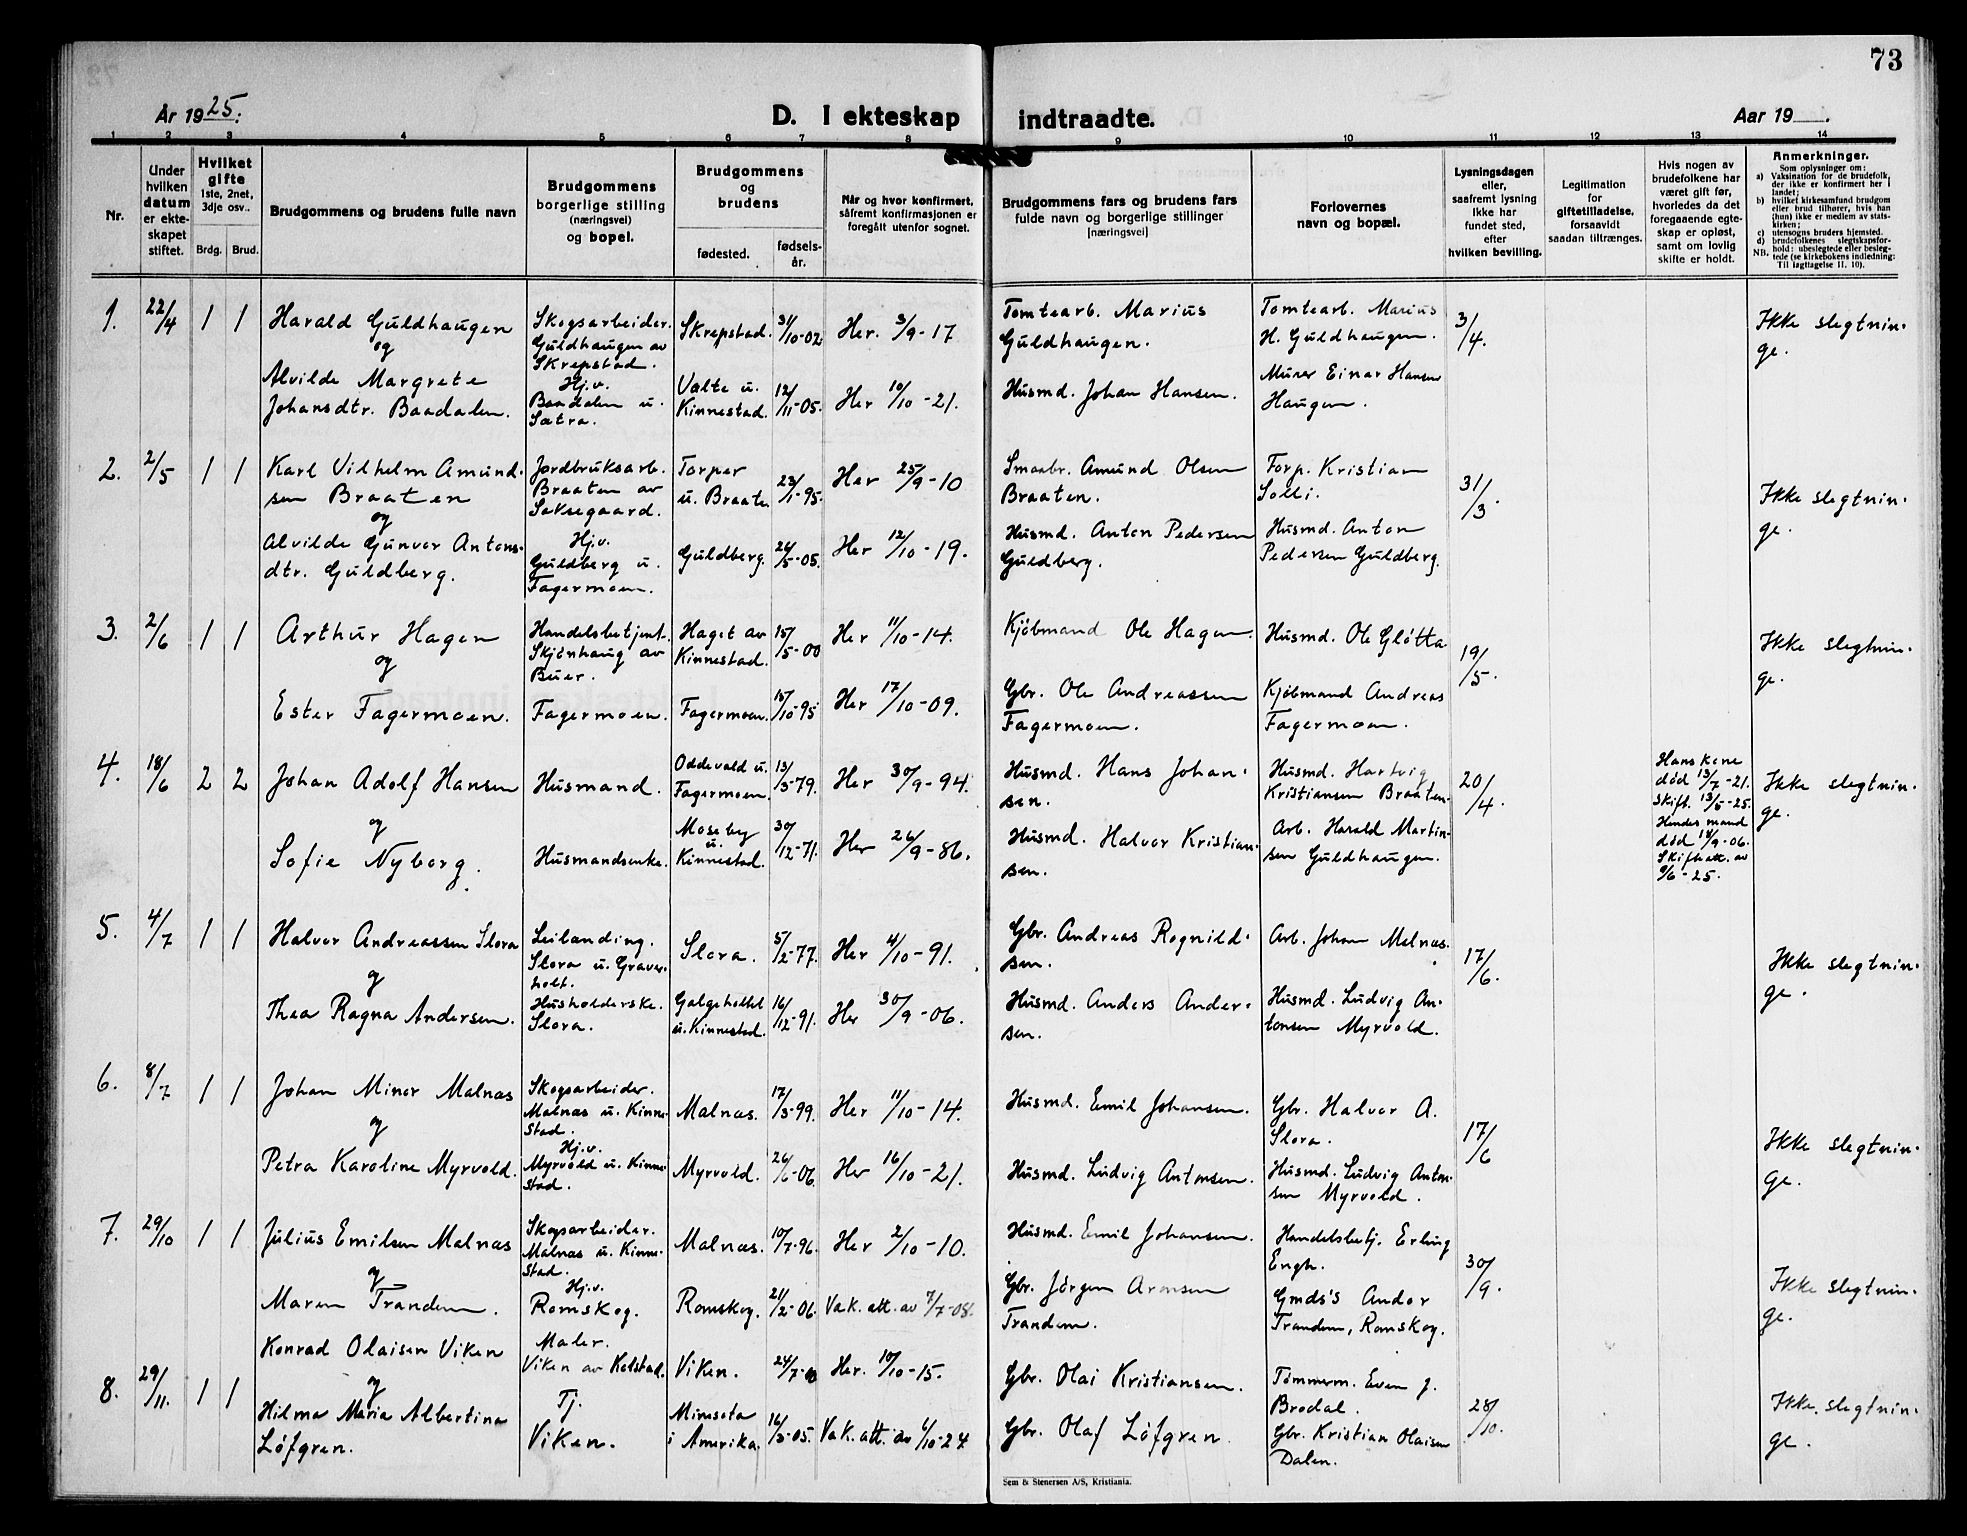 73
År 1925.
D. I ekteskap indtraadte.
Aar 19
1 2 3 4 5 6 7 8 9 10 11 12 13 14
Nr.
Under hvilken datum er ekte- skapet stiftet.
Hvilket gifte 1ste, 2net, 3dje osv..
Brdg. Brud.
Brudgommens og brudens fulle navn
Brudgommens borgerlige stilling (næringsvei) og bopel.
Brudgommens og brudens
fødested.
fødsels- år.
Når og hvor konfirmert, såfremt konfirmasjonen er foregått utenfor sognet.
Brudgommens fars og brudens fars fulde navn og borgerlige stillinger [næringsvei]
Forlovernes navn og bopæl.
Lysningsdagen eller, saafremt lysning ikke har fundet sted, efter hvilken bevilling.
Legitimation for giftetilladelse, forsaavidt saadan tiltrænges.
Hvis nogen av brudefolkene har været gift før, hvorledes da det foregaaende egte- skap er opløst, samt om lovlig skifte er holdt.
Anmerkninger.
Som oplysninger om:
a) Vaksination for de brudefolk, der ikke er konfirmert her i landet;
b) hvilket kirkesamfund brudgom eller brud tilhører, hvis han (hun) ikke er medlem av stats- kirken;
c) utensogns bruders hjemsted.
d) brudefolkenes slegtskapsfor- hold: ubeslegtede eller besleg- tede (se kirkebokens indledning:
NB. Til Iagttagelse II. 10).
1. 22/4 1 1 Harald Guldhaugen
og
Alvilde Margrete
Johansdtr. Baadalen.
Skogsarbeider.
Guldhaugen av
Skrepstad.
Hj.v.
Baadalen u.
Sætra.
Skrepstad. 31/10-02 Her. 3/9-17
Valte u.
Kinnestad. 12/11-05. Her 10/10-21.
Tomtearb. Marius
Guldhaugen.
Husmd. Johan Hansen.
Tomtearb. Marius
H. Guldhaugen.
Murer Einar Hansen
Haugen.
3/4.
Ikke slegtnin-
ge.
2. 2/5 1 1 Karl Vilhelm Amund-
sen Braaten
og
Alvilde Gunvor Antons-
dtr. Guldberg.
Jordbruksarb.
Braaten av
Saksegaard.
Hj.v.
Guldberg u.
Fagermoen.
Torper
u. Braate. 23/1-95. Her 25/9-10
Guldberg. 26/5-05. Her 12/10-19.
Smaabr. Amund Olsen
Braaten.
Husmd. Anton Pedersen
Guldberg.
Forp. Kristian
Solli.
Husmd. Anton
Pedersen Guldberg.
31/3.
Ikke slegtnin-
ge.
3. 2/6 1 1 Arthur Hagen
og
Ester Fagermoen.
Handelsbetjent.
Skjønhaug av
Buer.
Fagermoen.
Haget av
Kinnestad. 15/5-00 Her 11/10-14.
Fagermoen. 15/10-95 Her 17/10-09.
Kjöbmand Ole Hagen.
Gbr. Ole Andreassen
Fagermoen.
Husmd. Ole Gløtta
Kjöbmand Andreas
Fagermoen.
19/5.
Ikke slegtnin-
ge.
4. 18/6 2 2 Johan Adolf Hansen
og
Sofie Nyborg.
Husmand.
Husmandsenke.
Oddevald u.
Fagermoen. 13/3-79. Her 30/9-94.
Moseby
u.
Kinnestad. 30/12-71. Her 26/9-86.
Husmd. Hans Johan-
sen.
Husmd. Halvor Kristian-
sen.
Husmd. Hartvig
Kristiansen Braaten.
Arb. Harald Martin-
sen Guldhaugen.
20/4.
Hans kone
død 13/7-21.
Skift. 13/5-25.
Hendes mand
død 14/9-06.
Skifteatt. av
9/6-25.
Ikke slegtnin-
ge.
5. 4/7 1 1 Halvor Andreassen Slora
og
Thea Ragna Andersen.
Leilanding.
Slora u. Graver-
holt.
Husholderske.
Slora.
Slora. 5/2-77. Her 4/10-91.
Galgeholtet
u. Kinnestad. 16/12-91. Her 30/9-06.
Gbr. Andreas Rognild-
sen.
Husmd. Anders Ander-
sen.
Arb. Johan Malnas.
Husmd. Ludvig An-
tonsen Myrvold.
17/6.
Ikke slegtnin-
ge.
6. 8/7 1 1 Johan Minor Malnas
og
Petra Karoline Myrvold.
Skogsarbeider.
Malnas u. Kinne-
stad.
Hj.v.
Myrvold u. Kinne-
stad.
Malnas. 17/3-99. Her 11/10-14.
Myrvold. 26/6-06. Her 16/10-21.
Husmd. Emil Johansen.
Husmd. Ludvig Antonsen.
Gbr. Halvor A.
Slora.
Husmd. Ludvig Anton-
sen Myrvold.
17/6
Ikke slegtnin-
ge.
7. 29/10 1 1 Julius Emilsen Malnas
og
Maren Trandem.
Skogsarbeider.
Malnas u. Kinne-
stad.
Hj.v.
Romskog.
Malnas. 10/7-96. Her 2/10-10.
Romskog. 21/2-06. Vak. att. av 7/7-08.
Husmd. Emil Johansen.
Gbr. Jörgen Arnesen
Trandem.
Handelsbetj. Erling
Engh.
Gmds's Andor
Trandem, Romskog.
30/9.
Ikke slegtnin-
ge.
8. 29/11. 1 1 Konrad Olaisen Viken
og
Hilma Maria Albertina
Löfgren.
Maler.
Viken av Kolstad.
Tj.
Viken.
Viken. 24/7-00 Her. 10/10-15.
Minesota
i Amerika. 16/3-05. Vak. att. av 6/10-24
Gbr. Olai Kristiansen.
Gbr. Olaf Löfgren.
Tömmerm. Even J.
Brodal.
Gbr. Kristian Olaisen
Dalen.
28/10.
Ikke slegtnin-
ge.
Sem & Stenersen A/S, Kristiania.